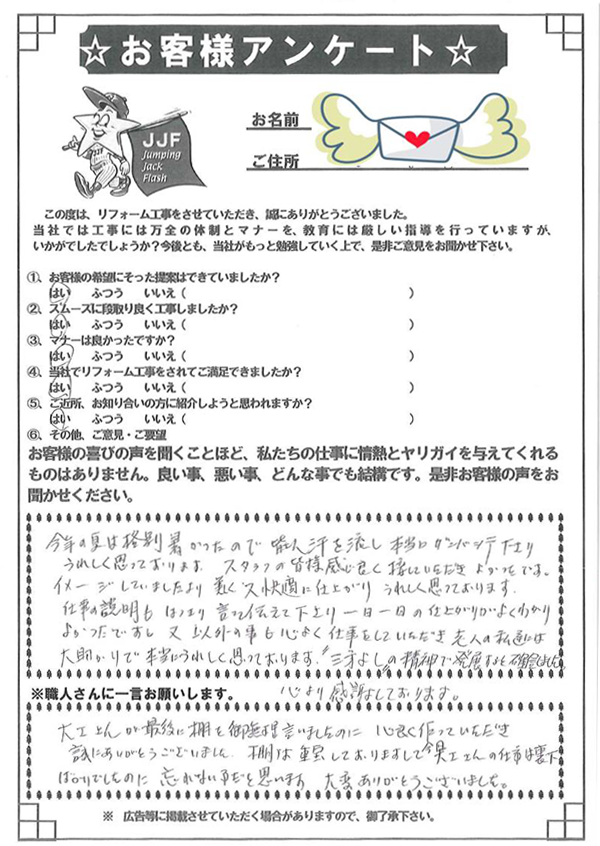 ☆お客様アンケート☆
JJF
Jumping
Jack
Flash
お名前
ご住所
この度は、リフォーム工事をさせていただき、誠にありがとうございました。
当社では工事には万全の体制とマナーを、教育には厳しい指導を行っていますが、
いかがでしたでしょうか？今後とも、当社がもっと勉強していく上で、是非ご意見をお聞かせ下さい。
①、お客様の希望にそった提案はできていましたか？
はい ふつう いいえ（ ）
②、スムーズに段取り良く工事しましたか？
はい ふつう いいえ（ ）
③、マナーは良かったですか？
はい ふつう いいえ（ ）
④、当社でリフォーム工事をされてご満足できましたか？
はい ふつう いいえ（ ）
⑤、ご近所、お知り合いの方に紹介しようと思われますか？
はい ふつう いいえ（ ）
⑥、その他、ご意見・ご要望
お客様の喜びの声を聞くことほど、私たちの仕事に情熱とヤリガイを与えてくれる
ものはありません。良い事、悪い事、どんな事でも結構です。是非お客様の声をお
聞かせください。
今年の夏は格別暑かったので 職人汗を流し 本当に ガンバッテ下さり
うれしく思っております スタッフの皆様感じ良く接していただき よかったです。
イメージしていましたより 美しく 快適に仕上がり うれしく思っております。
仕事の説明も はっきり 言って伝えて下さり 一日一日の仕上がりがよくわかり
よかったですし 又 以外の事も心よく仕事をしていただき 老人の私達には
大助かりで本当にうれしく思っております。"三方よし"の精神で発展すると確信
心より感謝しております。
※職人さんに一言お願いします。
大工さんが最後に棚を 言いましたのに 心良く作っていただき
誠にありがとうございました。棚は重宝しておりまして 大工さんの仕事は
ばかりでしたのに 忘れない事だと思います 大変ありがとうございました。
※ 広告等に掲載させていただく場合がありますので、御了承下さい。